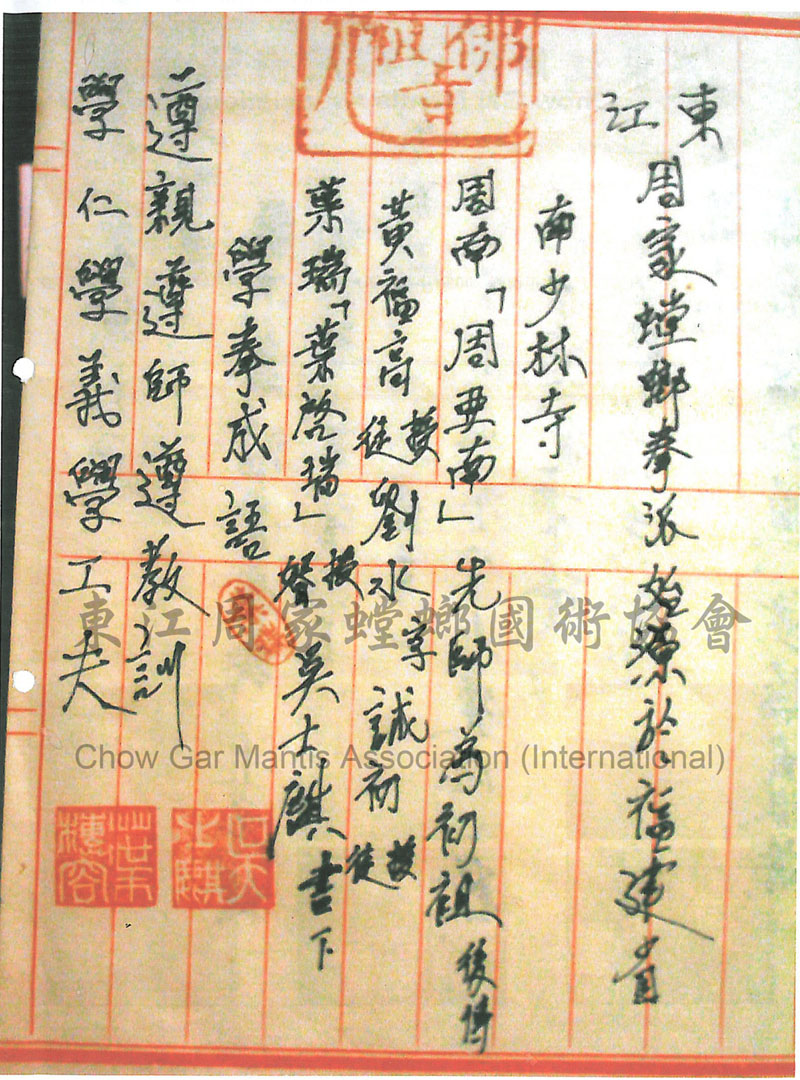 東江周家螳螂拳派始源於福建省
南少林寺
周南「周亜南」先師為初祖後傳
黃福高授徒劉水字誠初授徒
葉瑞「葉啓瑞」授
吳士麒書下
學拳成語
遵親遵師遵教訓
學仁學義學工夫
佛祖
吳士麒
葉
東江周家螳螂國術協會
Chow Gar Mantis Association (International)